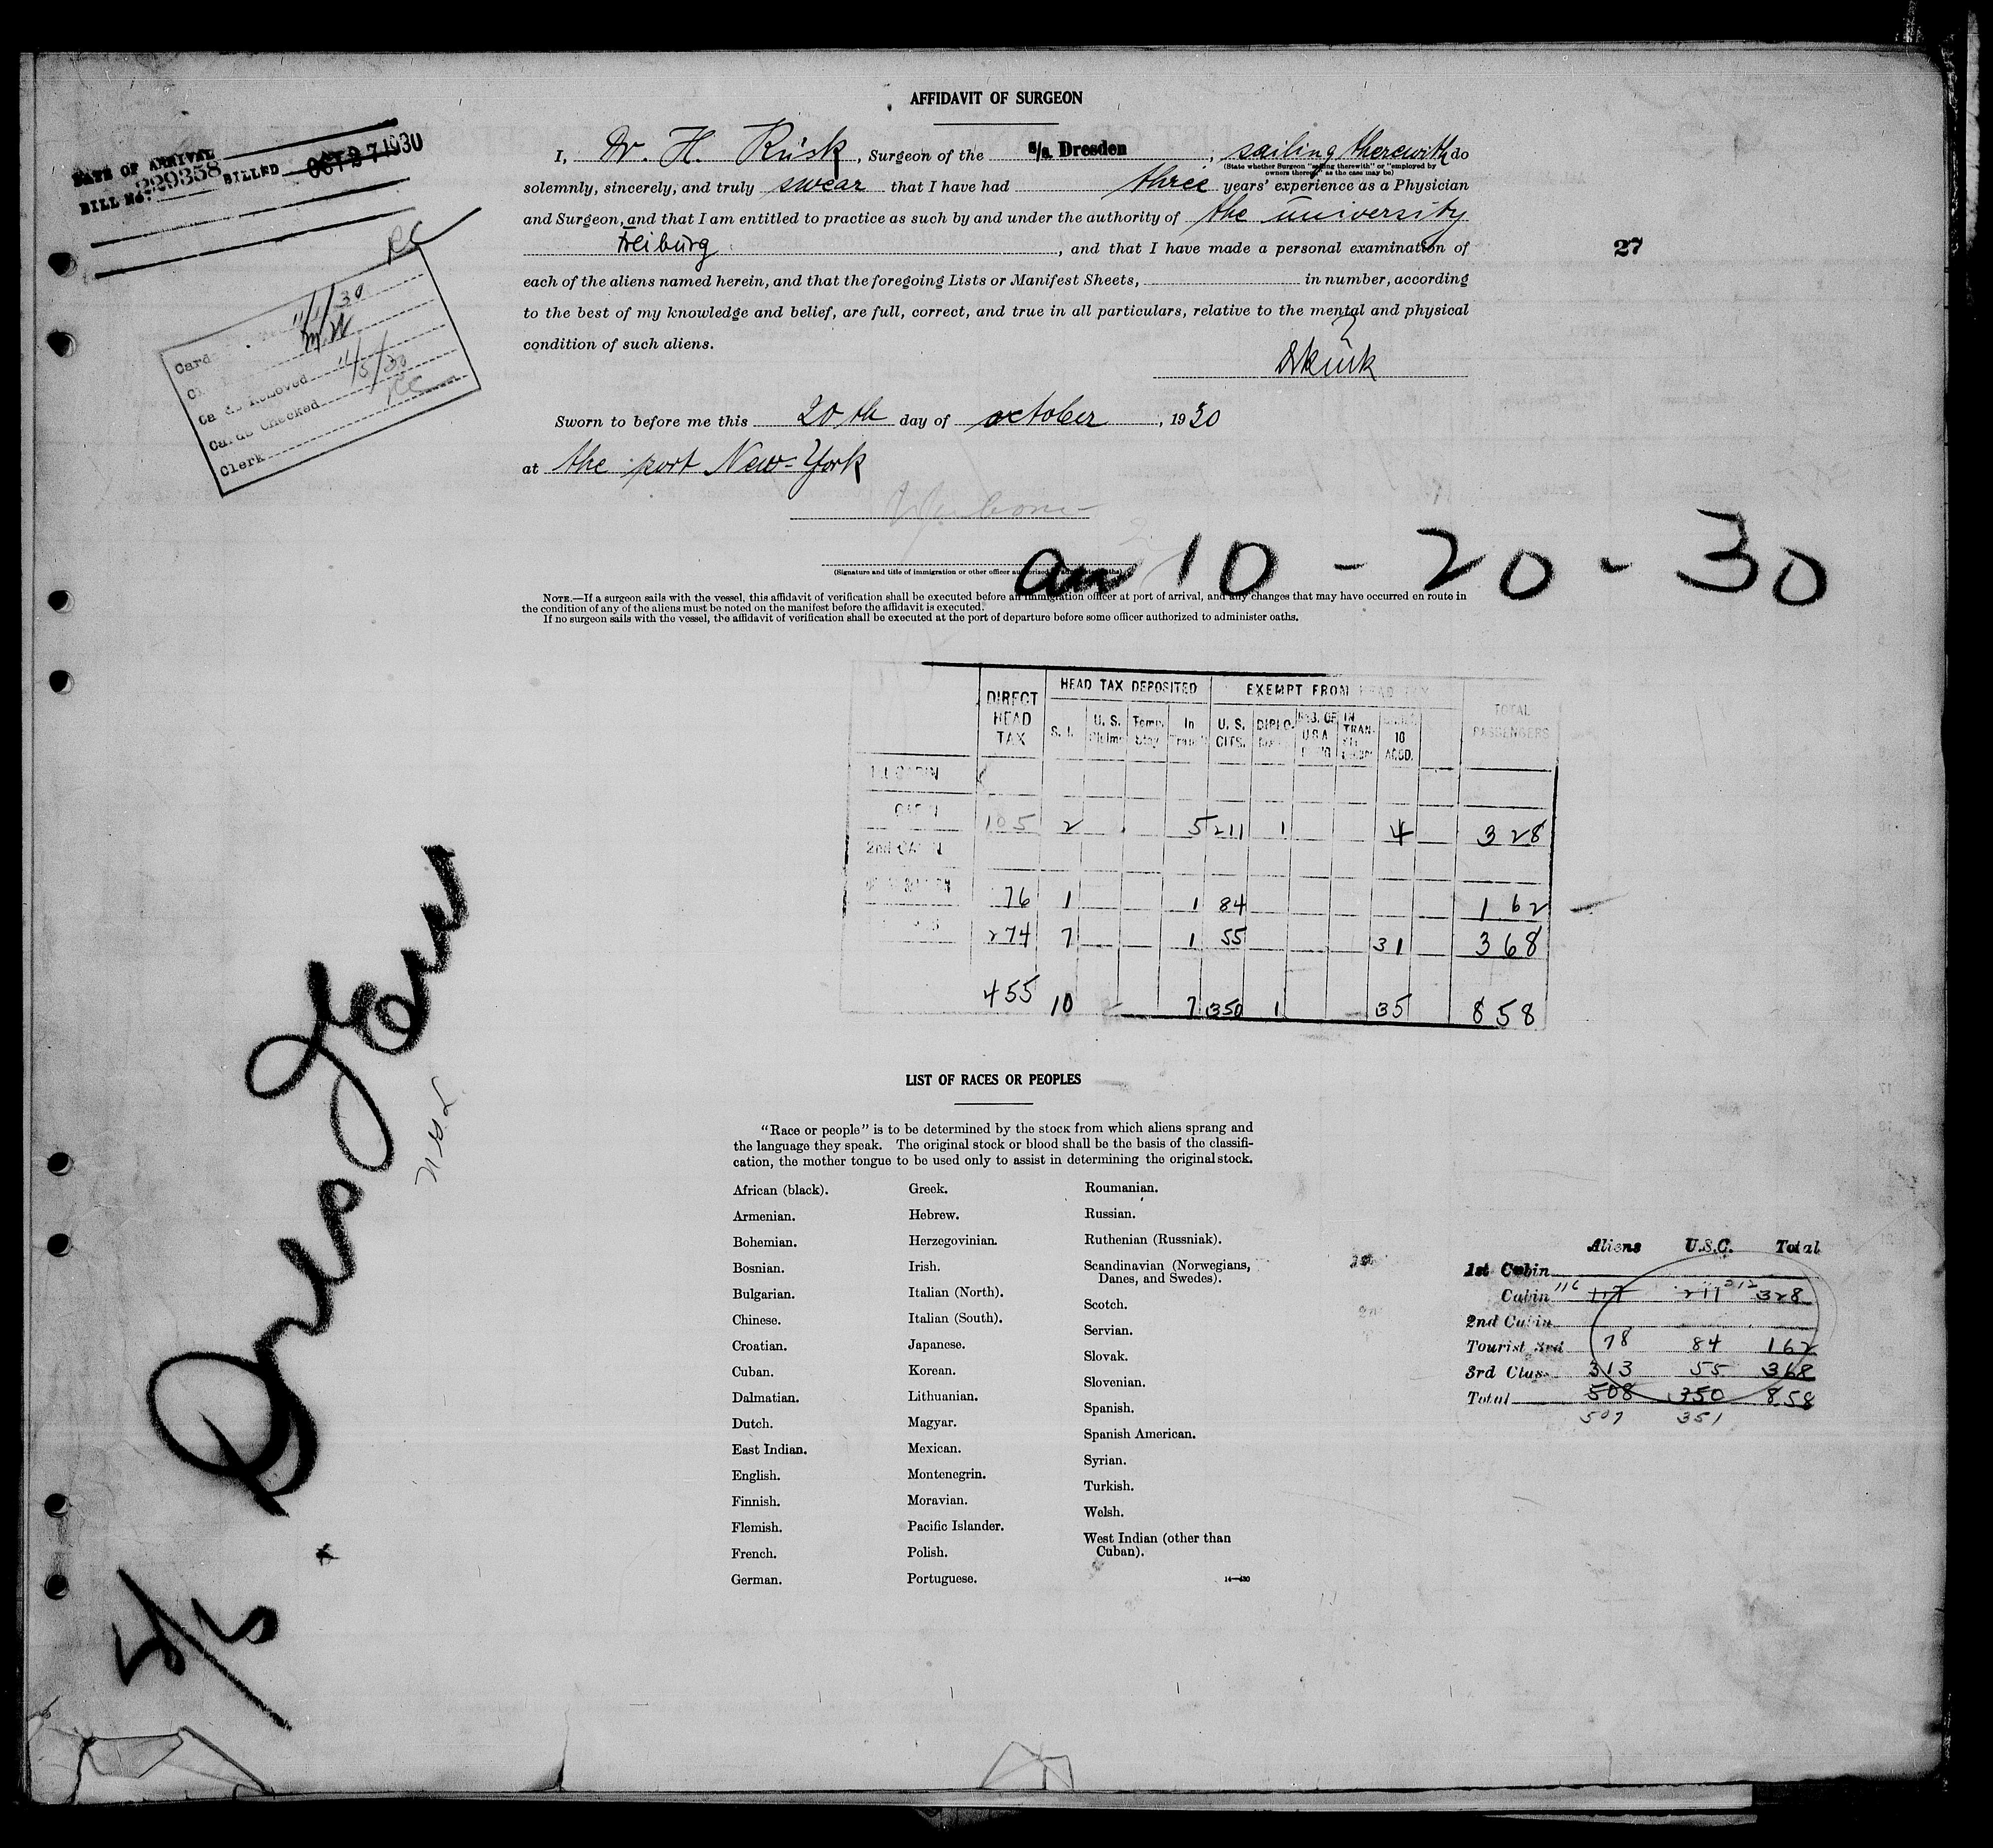 AFFIDAVIT OF SURGEON
DATE OF ARRIVAL
BILL No. 229358 BILLED OCT 27 1930
I, Dr. H. Rusk, Surgeon of the S/s. Dresden, sailing therewith do
(State whether Surgeon "sailing therewith" or "employed by
owners thereof," as the case may be)
solemnly, sincerely, and truly swear that I have had three years' experience as a Physician
and Surgeon, and that I am entitled to practice as such by and under the authority of the university
Freiburg, and that I have made a personal examination of
27
each of the aliens named herein, and that the foregoing Lists or Manifest Sheets, in number, according
to the best of my knowledge and belief, are full, correct, and true in all particulars, relative to the mental and physical
condition of such aliens.
11/1/30
Cards Removed 11/5/30
Cards Checked
Clerk
Sworn to before me this 20th day of october, 1930
at the port New-York
(Signature and title of immigration or other officer authorized to administer oaths)
10 - 20 - 30
NOTE.—If a surgeon sails with the vessel, this affidavit of verification shall be executed before an immigration officer at port of arrival, and any changes that may have occurred en route in
the condition of any of the aliens must be noted on the manifest before the affidavit is executed.
If no surgeon sails with the vessel, the affidavit of verification shall be executed at the port of departure before some officer authorized to administer oaths.
DIRECT HEAD TAX HEAD TAX DEPOSITED EXEMPT FROM HEAD TAX TOTAL PASSENGERS
S. I. U. S. Claims Temp. Stay In Transit U. S. CITS. DIPLO. IN TRAN- 10 ACCD.
1st CABIN
CABIN 105 2 5 211 1 4 328
2nd CABIN
76 1 1 84 162
274 7 1 55 31 368
455 10 7 350 1 35 858
LIST OF RACES OR PEOPLES
"Race or people" is to be determined by the stock from which aliens sprang and
the language they speak. The original stock or blood shall be the basis of the classifi-
cation, the mother tongue to be used only to assist in determining the original stock.
African (black).
Armenian.
Bohemian.
Bosnian.
Bulgarian.
Chinese.
Croatian.
Cuban.
Dalmatian.
Dutch.
East Indian.
English.
Finnish.
Flemish.
French.
German.
Greek.
Hebrew.
Herzegovinian.
Irish.
Italian (North).
Italian (South).
Japanese.
Korean.
Lithuanian.
Magyar.
Mexican.
Montenegrin.
Moravian.
Pacific Islander.
Polish.
Portuguese.
Roumanian.
Russian.
Ruthenian (Russniak).
Scandinavian (Norwegians,
Danes, and Swedes).
Scotch.
Servian.
Slovak.
Slovenian.
Spanish.
Spanish American.
Syrian.
Turkish.
Welsh.
West Indian (other than
Cuban).
14—430
Aliens U.S.C. Total
1st Cabin
Cabin 116 117 211 212 328
2nd Cabin
Tourist 3rd 78 84 162
3rd Class 313 55 368
Total 508 350 858
507 351